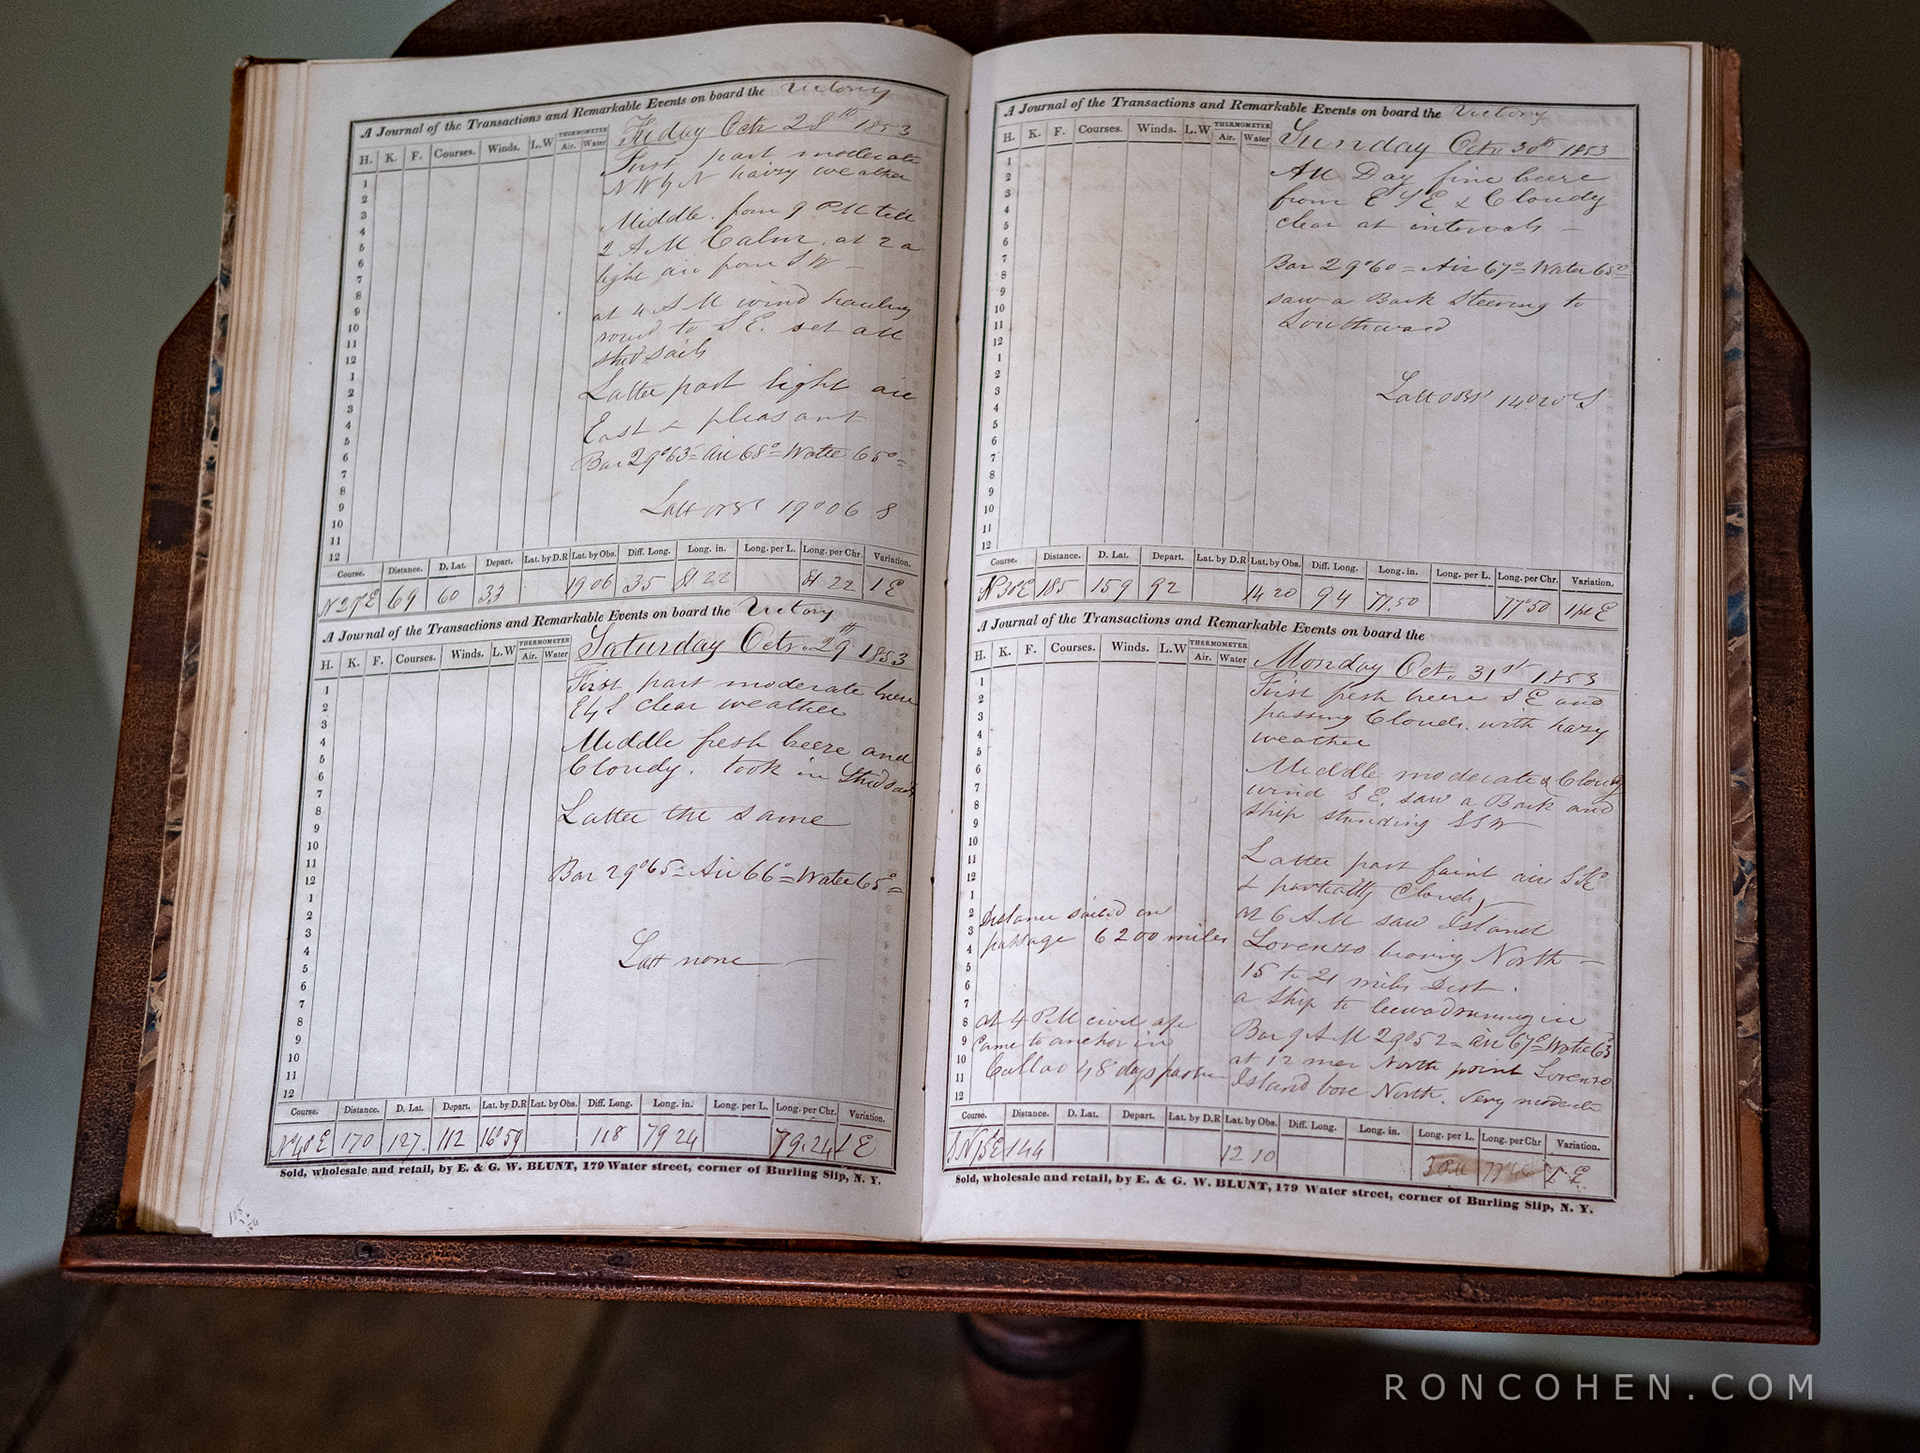 A Journal of the Transactions and Remarkable Events on board the Victory
H. K. F. Courses. Winds. L.W THERMOMETER Air. Water
Friday Octr 28th 1853
First part moderate
N W by N hazy weather
Middle. from 9 PM till
2 A M Calm. at 2 a
light air from S W –
at 4 A M wind hauling
round to S E. set all
Latter part light air
East & pleasant
Bar 29°63 = Air 68° = Water 65° =
Latt obs 19°06 S
1
2
3
4
5
6
7
8
9
10
11
12
1
2
3
4
5
6
7
8
9
10
11
12
Course. Distance. D. Lat. Depart. Lat. by D.R Lat. by Obs. Diff. Long. Long. in. Long. per L. Long. per Chr. Variation.
N 29 E 69 60 33 19 06 35 81 22 81 22 1 E
A Journal of the Transactions and Remarkable Events on board the Victory
H. K. F. Courses. Winds. L.W THERMOMETER Air. Water
Saturday Octr. 29th 1853
First part moderate breeze
E by S clear weather
Middle fresh breeze and
Cloudy. took in Studsails
Latter the same
Bar 29°65 = Air 66° = Water 65° =
Latt none
1
2
3
4
5
6
7
8
9
10
11
12
1
2
3
4
5
6
7
8
9
10
11
12
Course. Distance. D. Lat. Depart. Lat. by D.R Lat. by Obs. Diff. Long. Long. in. Long. per L. Long. per Chr. Variation.
170 127 112 16°59 118 79 24 79.24 1 E
Sold, wholesale and retail, by E. & G. W. BLUNT, 179 Water street, corner of Burling Slip, N. Y.
A Journal of the Transactions and Remarkable Events on board the Victory
H. K. F. Courses. Winds. L.W THERMOMETER Air. Water
Sunday Octr. 30th 1853
All Day fine breeze
from E S E & Cloudy
clear at intervals –
Bar 29°60 = Air 67° = Water 65° =
saw a Bark Steering to
Southward
Latt obs 14°20 S
1
2
3
4
5
6
7
8
9
10
11
12
1
2
3
4
5
6
7
8
9
10
11
12
Course. Distance. D. Lat. Depart. Lat. by D.R Lat. by Obs. Diff. Long. Long. in. Long. per L. Long. per Chr. Variation.
N 30 E 185 159 92 14 20 94 77.50 77°50
A Journal of the Transactions and Remarkable Events on board the
H. K. F. Courses. Winds. L.W THERMOMETER Air. Water
Monday Oct. 31st 1853
First fresh breeze S E and
passing Clouds. with hazy
weather
Middle moderate & Cloudy
wind S E. saw a Bark and
ship standing S S W
Latter part faint air S S E
& partially Cloudy
at 6 A M saw Island
Lorenzo bearing North –
15 to 21 miles Dist.
a ship to leeward running in
Bar 9 A M 29°52 = Air 67° = Water 63
at 12 mer North point Lorenzo
Island bore North. Very moderate
Distance sailed on
passage 6200 miles
at 4 PM civil
Came to anchor in
Callao 48 days
1
2
3
4
5
6
7
8
9
10
11
12
1
2
3
4
5
6
7
8
9
10
11
12
Course. Distance. D. Lat. Depart. Lat. by D.R Lat. by Obs. Diff. Long. Long. in. Long. per L. Long. per Chr Variation.
144 12 10
Sold, wholesale and retail, by E. & G. W. BLUNT, 179 Water street, corner of Burling Slip, N. Y.
RONCOHEN.COM